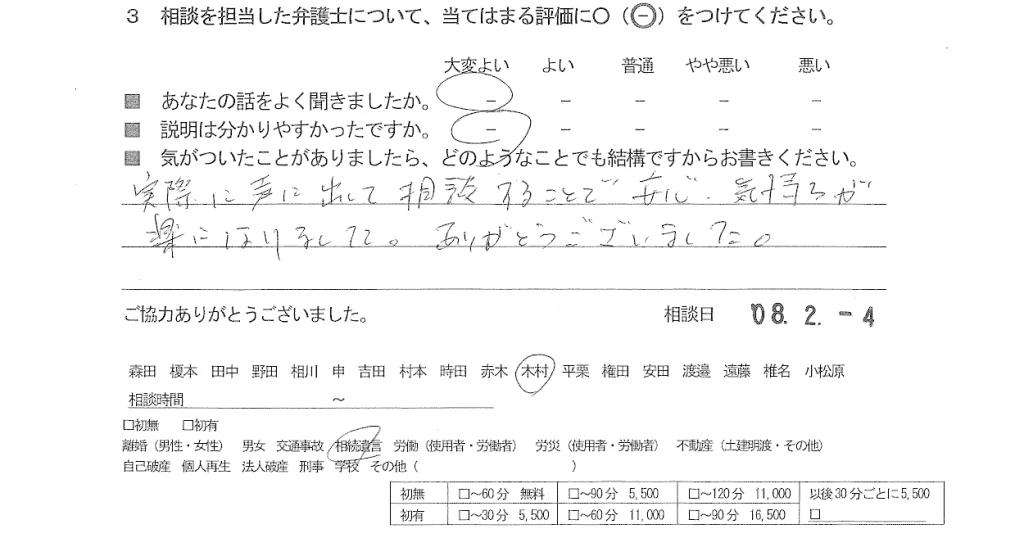 3 相談を担当した弁護士について、当てはまる評価に○（㊀）をつけてください。
大変よい よい 普通 やや悪い 悪い
■ あなたの話をよく聞きましたか。 － － － － －
■ 説明は分かりやすかったですか。 － － － － －
■ 気がついたことがありましたら、どのようなことでも結構ですからお書きください。
実際に声に出して相談することで安心、気持ちが
楽になりました。ありがとうございました。
ご協力ありがとうございました。 相談日 '08.2.-4
森田 榎本 田中 野田 相川 申 吉田 村本 時田 赤木 木村 平栗 権田 安田 渡邉 遠藤 椎名 小松原
相談時間 ～
□初無 □初有
離婚（男性・女性） 男女 交通事故 相続遺言 労働（使用者・労働者） 労災（使用者・労働者） 不動産（土建明渡・その他）
自己破産 個人再生 法人破産 刑事 学校 その他（ ）
初無 □～60分 無料 □～90分 5,500 □～120分 11,000 以後30分ごとに5,500
初有 □～30分 5,500 □～60分 11,000 □～90分 16,500 □